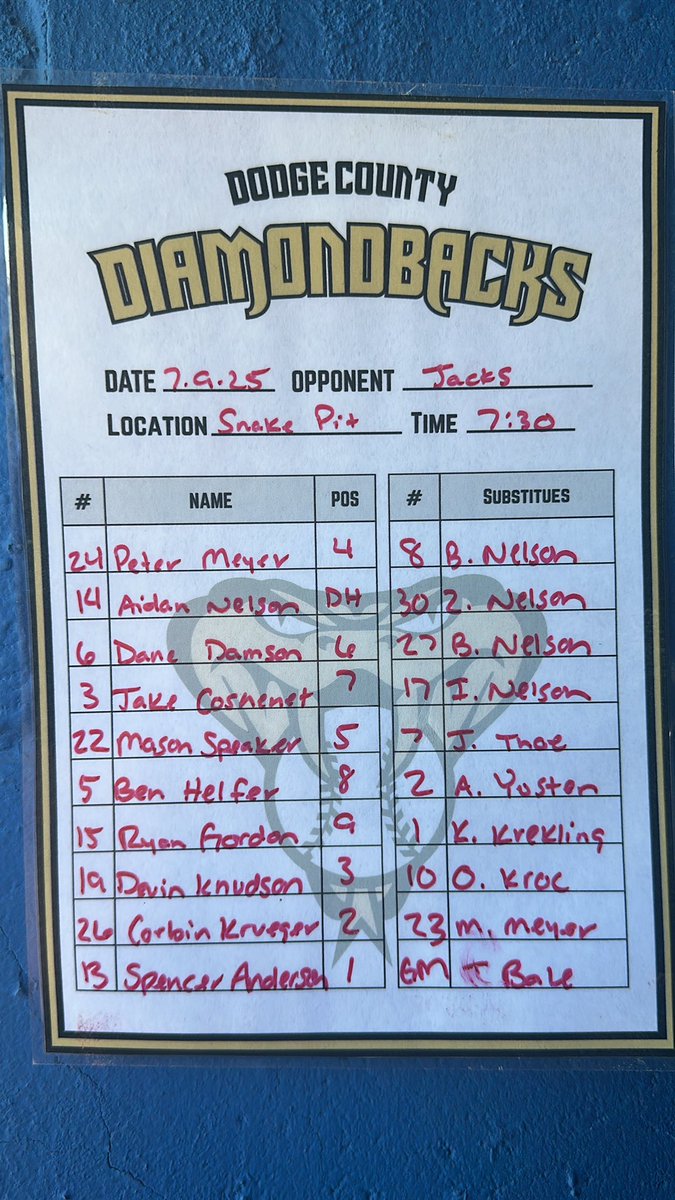 DODGE COUNTY
DIAMONDBACKS
DATE 7.9.25 OPPONENT Jacks
LOCATION Snake Pit TIME 7:30
# NAME POS # SUBSTITUES
24 Peter Meyer 4 8 B. Nelson
14 Aidan Nelson DH 30 Z. Nelson
6 Dane Damson 6 27 B. Nelson
3 Jake Coshenet 7 17 I. Nelson
22 Mason Speaker 5 7 J. Thoe
5 Ben Helfer 8 2 A. Yosten
15 Ryan Gordon 9 1 K. Krekling
19 Davin Knudson 3 10 O. Kroc
26 Corbin Krueger 2 23 M. Meyer
13 Spencer Anderson 1 GM T Bale